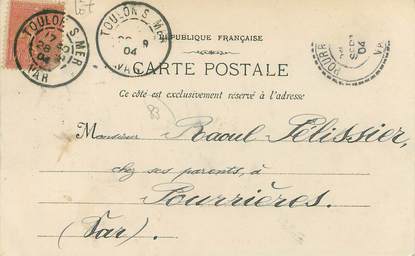 TOULON S. MER
17 40
28
04
VAR
Lot
TOULON S. MER
04
VAR
RÉPUBLIQUE FRANÇAISE
CARTE POSTALE
Ce côté est exclusivement réservé à l'adresse
Monsieur Raoul Pélissier,
chez ses parents, à
Pourrières.
(Var).